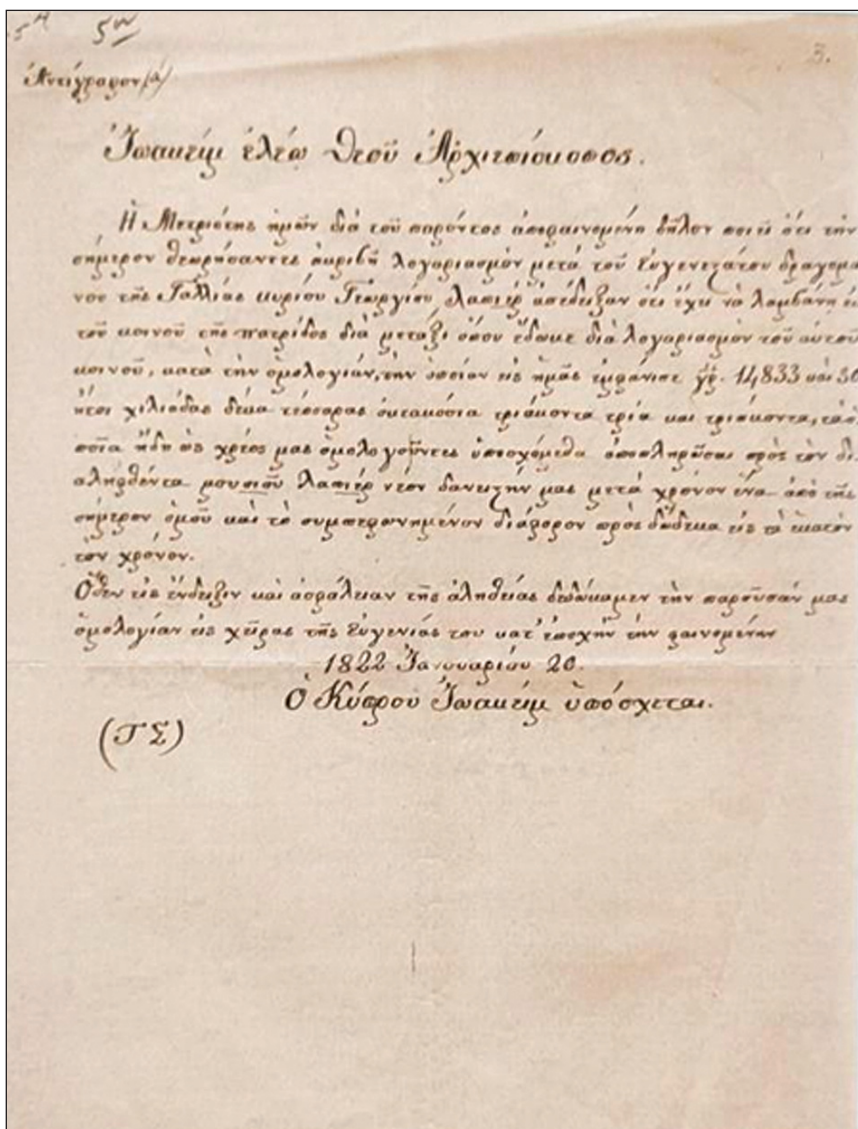 5ον
3.
Ἀντίγραφον (ά)
Ἰωακεὶμ ἐλέῳ Θεοῦ Ἀρχιεπίσκοπος.
Ἡ Μετριότης ἡμῶν διὰ τοῦ παρόντος ἀποφαινομένη δῆλον ποιεῖ ὅτι τὴν
σήμερον θεωρήσαντες ἀκριβῆ λογαριασμὸν μετὰ τοῦ εὐγενεστάτου δραγομά
νου τῆς Γαλλίας κυρίου Γεωργίου Λαπιὲρ ἀπέδειξαν ὅτι ἔχει νὰ λαμβάνῃ ἐκ
τοῦ κοινοῦ τῆς πατρίδος διὰ μετάξι ὁποῦ ἔδωκε διὰ λογαριασμὸν τοῦ αὐτοῦ
κοινοῦ, κατὰ τὴν ὁμολογίαν, τὴν ὁποίαν εἰς ἡμᾶς ἐμφάνισε γρ. 14,833 καὶ 30
ἤτοι χιλιάδας δέκα τέσσαρας ὀκτακόσια τριάκοντα τρία καὶ τριάκοντα, τὰ ὁ
ποῖα ἤδη ὡς χρέος μας ὁμολογοῦντες ὑποσχόμεθα ἀποπληρῶσαι πρὸς τὸν δι
αληφθέντα μουσιοῦ Λαπιὲρ νέον δανειστήν μας μετὰ χρόνον ἕνα ἀπὸ τῆς
σήμερον ὁμοῦ καὶ τὸ συμπεφωνημένον διάφορον πρὸς δώδεκα εἰς τὰ ἑκατὸν
τὸν χρόνον.
Ὅθεν εἰς ἔνδειξιν καὶ ἀσφάλειαν τῆς ἀληθείας δεδώκαμεν τὴν παροῦσάν μας
ὁμολογίαν εἰς χεῖρας τῆς εὐγενίας του κατ' ἐποχὴν τὴν φαινομένην
1822 Ἰανουαρίου 20.
Ὁ Κύπρου Ἰωακεὶμ ὑπόσχεται.
(Τ Σ)